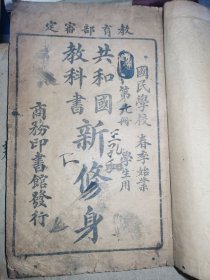 教育部審定
國民學校
春季始業
學生用
共和國
教科書
新修身
商務印書館發行